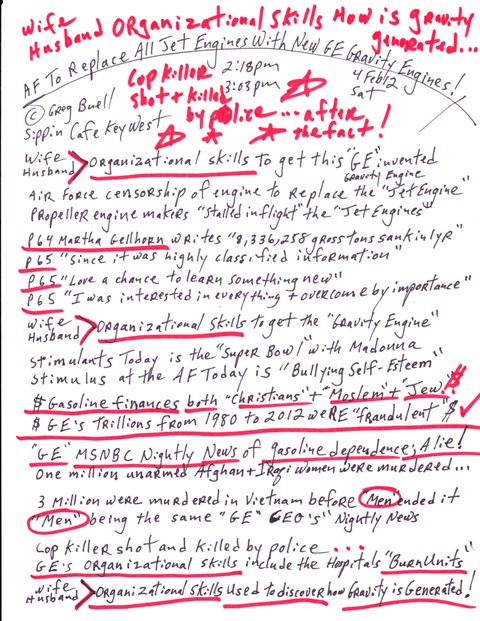 Wife
Husband Organizational Skills How is gravity
generated...
AF To Replace All Jet Engines With New GE Gravity Engines!
Cop Killer 2:18pm
shot + killed 3:03pm
4 Feb 12
Sat
by police... after
the fact!
© Greg Buell
Sippin Cafe Key West
Wife
Husband > Organizational skills to get this "GE" invented
Gravity Engine
Air Force censorship of engine to replace the "Jet Engine"
Propeller engine makers "stalled in flight" the "Jet Engines"
P64 Martha Gellhorn writes "8,336,258 gross tons sank in 1yr"
P65 "Since it was highly classified information"
P65 "Love a chance to learn something new"
P65 "I was interested in everything + overcome by importance"
Wife
Husband > Organizational Skills to get the "Gravity Engine"
Stimulants Today is the "Super Bowl" with Madonna
Stimulus at the AF Today is "Bullying Self-Esteem"
$ Gasoline finances both "Christians" + "Moslem" + "Jew"! $
$ GE's Trillions from 1980 to 2012 were "fraudulent" $ ✓
"GE" MSNBC Nightly News of gasoline dependence; A lie!
One million unarmed Afghan + Iraqi women were murdered...
3 Million were murdered in Vietnam before "Men" ended it
"Men" being the same "GE" CEO's" Nightly News
Cop killer shot and killed by police...
GE's organizational skills include the Hospitals "Burn Units"
Wife
Husband > Organizational skills used to discover how Gravity is Generated!